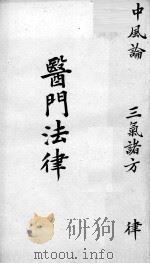 中風論 三氣諸方 律
醫門法律